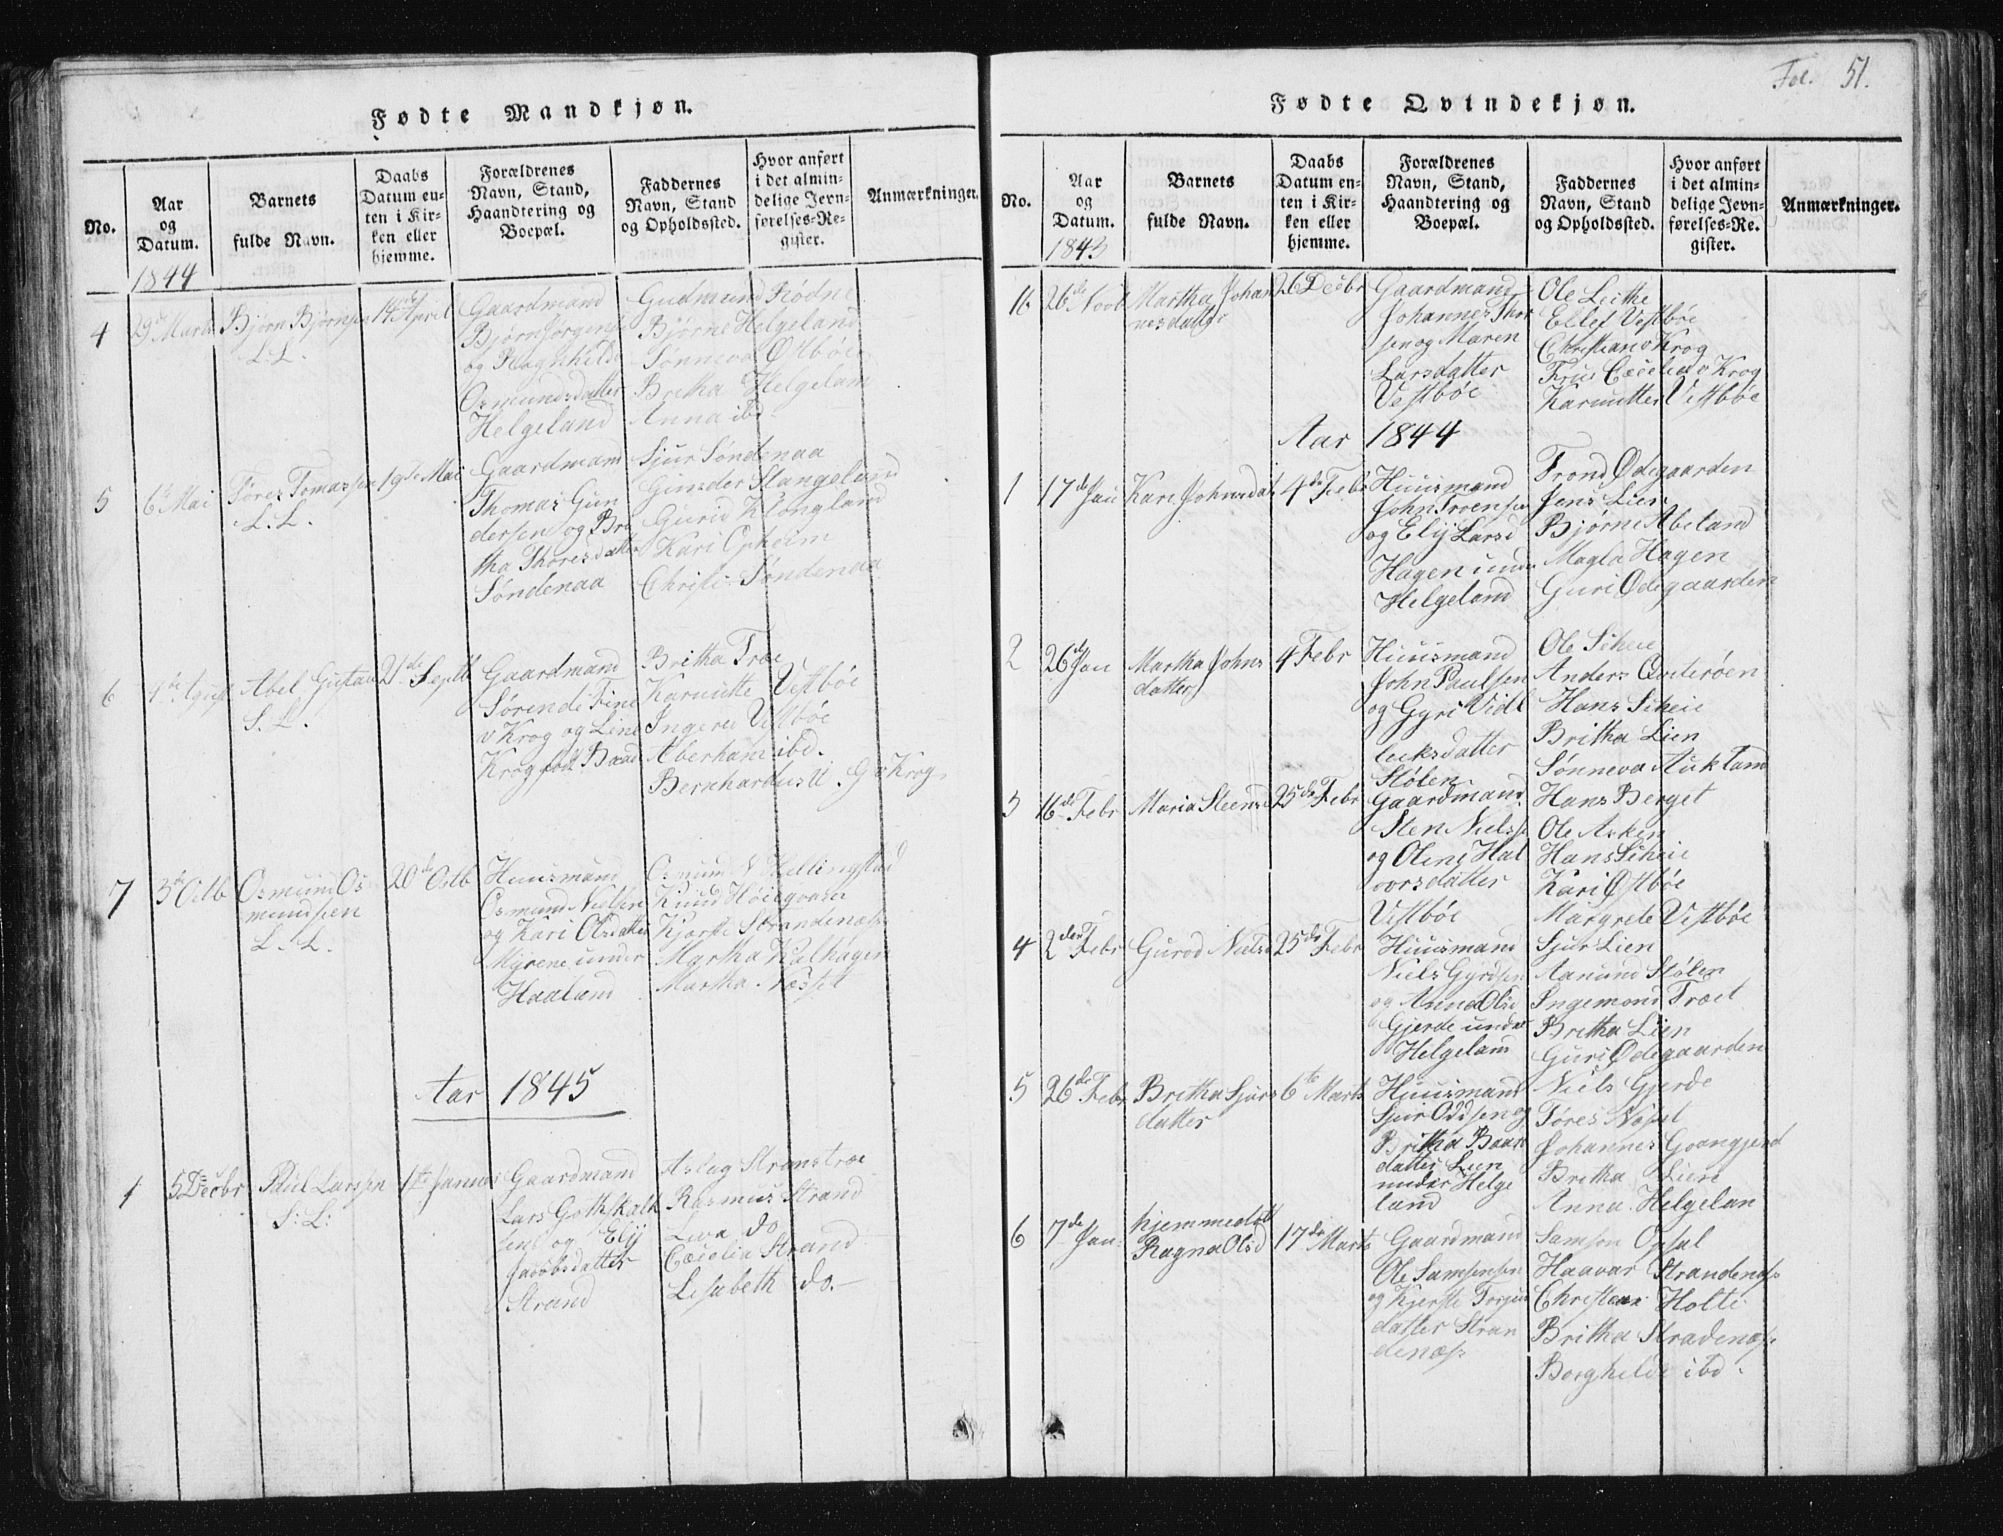 Fol. 51.
Fødte Mandkjøn.
No.
Aar
og
Datum.
Barnets
fulde Navn.
Daabs
Datum en-
ten i Kir-
ken eller
hjemme.
Forældrenes
Navn, Stand,
Haandtering og
Boepæl.
Faddernes
Navn, Stand
og Opholdssted.
Hvor anført
i det almin-
delige Jevn-
førelses-Re-
gister.
Anmærkninger.
1844
4
29de Marts
Bjørn Bjørnsen
L. L.
14de April
Gaardmand
og Ragnhilde
Osmundsdatter
Helgeland
Gudmund Rødne
Bjørne Helgeland
Sønneva Østbøe
Britha Helgelan
Anna ibd
5
6te Mai
Tores Tomassen
L. L.
19de Mai
Gaardmand
Thomas Gun
dersen og Bri
tha Thoresdatter
Søndenaa
Sjur Søndenaa
Gunder Stangeland
Gurid Klongland
Kari Opheim
Christi Søndenaa
6
Abel Gustav
S. L.
21de Septb
Gaardmand
Søren de Fine
v Krog og Line
Krog født Baad
Britha Træe
Karnutte Vestbøe
Ingered Vestbøe
Aberham ibd.
G v Krog
7
3de Octb
Osmund Os
mundsen
L. L.
20de Octb
Huusmand
Osmund Nielsen
og Kari Olsdatter
Myrene under
Haaland
Osmund N Hellingstad
Knud Høiegvam
Kjerste Strandenæs
Martha Kalhagen
Martha Næsset
Aar 1845
1
5 Decbr
Paul Larssen
S: L:
1te Januar
Gaardmand
Lars Gothskalk
sen og Elij
Jacobsdatter
Strand
Aslag Stranstræe
Rasmus Strand
Liva do
Cæcelia Strand
Lisabeth do.
Fødte Qvindekjøn.
No.
Aar
og
Datum.
Barnets
fulde Navn.
Daabs
Datum en-
ten i Kir-
ken eller
hjemme.
Forældrenes
Navn, Stand,
Haandtering og
Boepæl.
Faddernes
Navn, Stand
og Opholdssted.
Hvor anført
i det almin-
delige Jevn-
førelses-Re-
gister.
Anmærkninger.
1843
16
26de Novb
Martha Johan
nesdatter
26 Decbr
Gaardmand
Johannes Thor
sen og Maren
Larsdatter
Vestbøe
Ole Leithe
Ellef Vestbøe
Christian v Krog
Frue Cæcelia v Krog
Karnutte Vestbøe
Aar 1844
1
17de Jan
Kari Johnsdat
4de Febr
Huusmand
John Troensen
og Elij Larsd
Hagen unde
Helgeland
Trond Ødegaarden
Jens Lien
Bjørne Abeland
Magla Hagen
Guri Ødegaarden
2
26de Jan
Martha Johns
datter
4 Febr
Huusmand
John Paulsen
og Gyri Vidl
leiksdatter
Stølen
Ole Scheie
Anders Qviterøen
Hans Scheie
Britha Lien
Sønneva Aukland
3
16de Febr
Maria Steensd
25de Febr
Gaardmand
Sten Nielss
og Oline Hal
vorsdatter
Vestbøe
Hans Berget
Ole Asken
Hans Scheie
Kari Østbøe
Margrete Vestbøe
4
2den Febr
Gurod Nielsd
25de Febr
Huusmand
Niels Gyrdsen
og Anna Olsd
Gjerde under
Helgeland
Sjur Lien
Aanund Stølen
Ingemond Træet
Britha Lien
Guri Ødegaarden
5
26de Febr
Britha Sjurs
datter
6te Marts
Huusmand
Sjur Oddsen og
Britha Baar
datter Lien
under Helge
land
Niels Gjerde
Tores Næset
Johannes Goangjerd
Britha Lien
Anna Helgelan
6
7de Jan
hjemmedøbt
Ragna Olsd
17de Marts
Gaardmand
Ole Samsensen
og Kjerste Torjus
datter Stran
denæs
Samson Opsal
Haavar Strandenæs
Christen Holte
Britha Stradenæs
Borghilde ibd.